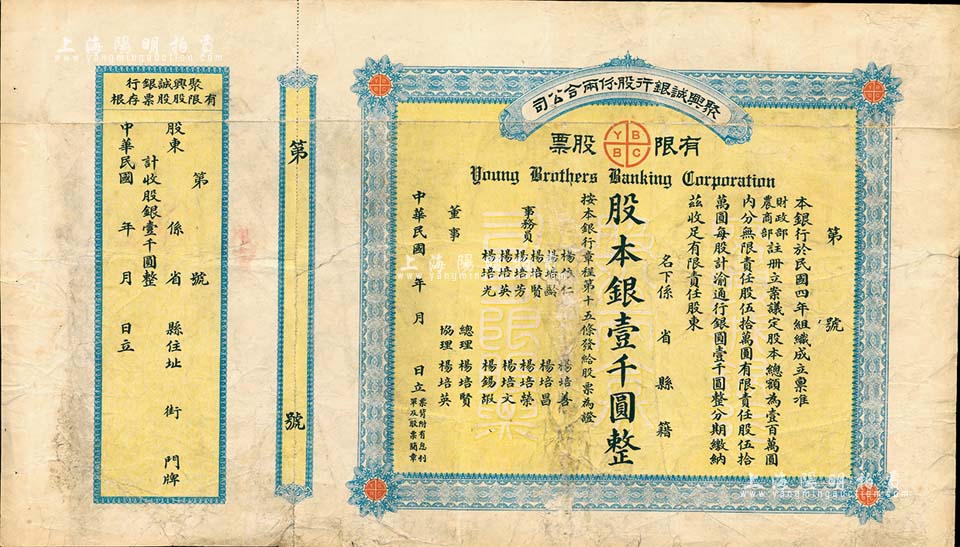 上海陽明拍賣
www.yangmingauction.com
聚興誠銀行股份兩合公司
有限股票
YBBC
Young Brothers Banking Corporation
第 號
本銀行於民國四年組織成立稟准
財政部農商部註册立案議定股本總額為壹百萬圓
內分無限責任股伍拾萬圓有限責任股伍拾
萬圓每股計渝通行銀圓壹千圓整分期繳納
茲收足有限責任股東
名下係 省 縣 籍
股本銀壹千圓整
按本銀行章程第十五條發給股票為證
事務員
楊培仁
楊培齡
楊培賢
楊培芳
楊培英
楊培光
楊培善
楊培昌
楊培榮
楊培文
楊錫嘏
董事
總理 楊培賢
協理 楊培英
中華民國 年 月 日立
票背附有息利
單及股票簡章
第 號
聚興誠銀行
有限股股票存根
第 號
股東 係 省 縣住址 街 門牌
計收股銀壹千圓整
中華民國 年 月 日立
上海陽明拍賣
www.yangmingauction.com
上海陽明拍賣
www.yangmingauction.com